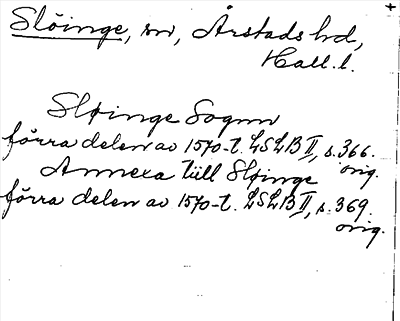 Slöinge, sn, Årstads hd,
Hall. l.
Sløinge Sognn
förra delen av 1570-t. LSLB II, s. 366.
orig.
Annexa till Sløinge
förra delen av 1570-t. LSLB II, s. 369.
orig.